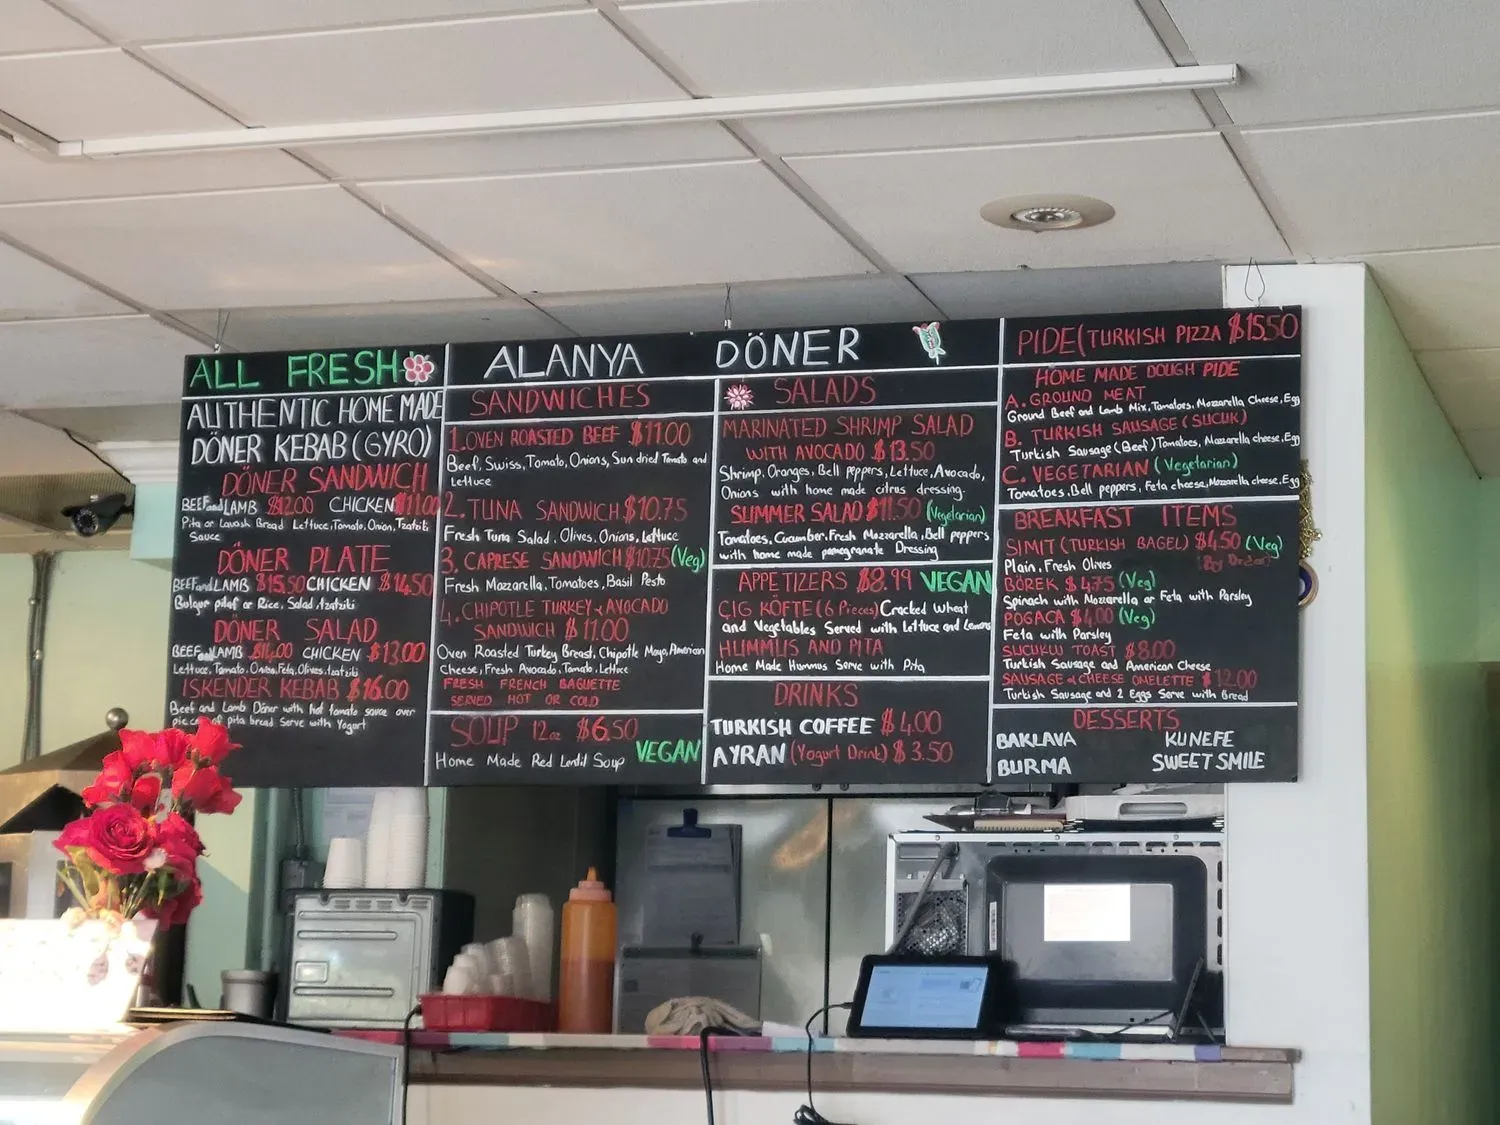 ALL FRESH
AUTHENTIC HOME MADE
DÖNER KEBAB (GYRO)
DÖNER SANDWICH
BEEF and LAMB $12.00 CHICKEN $11.00
Pita or Lavash Bread Lettuce, Tomato, Onion, Tzatziki
Sauce
DÖNER PLATE
BEEF and LAMB $15.50 CHICKEN $14.50
Bulgur pilaf or Rice, Salad, tzatziki
DÖNER SALAD
BEEF and LAMB $14.00 CHICKEN $13.00
Lettuce, Tomato, Onion, Feta, Olives, tzatziki
ISKENDER KEBAB $16.00
Beef and Lamb Döner with hot tomato sauce over
of pita bread Serve with Yogurt
ALANYA DÖNER
SANDWICHES
1. OVEN ROASTED BEEF $11.00
Beef, Swiss, Tomato, Onions, Sun dried Tomato and
Lettuce
2. TUNA SANDWICH $10.75
Fresh Tuna Salad, Olives, Onions, Lettuce
3. CAPRESE SANDWICH $10.75 (Veg)
Fresh Mozzarella, Tomatoes, Basil Pesto
4. CHIPOTLE TURKEY & AVOCADO
SANDWICH $11.00
Oven Roasted Turkey Breast, Chipotle Mayo, American
Cheese, Fresh Avocado, Tomato, Lettuce
FRESH FRENCH BAGUETTE
SERVED HOT OR COLD
SOUP 12oz $6.50
VEGAN
Home Made Red Lentil Soup
SALADS
MARINATED SHRIMP SALAD
WITH AVOCADO $13.50
Shrimp, Oranges, Bell peppers, Lettuce, Avocado,
Onions with home made citrus dressing.
SUMMER SALAD $11.50 (Vegetarian)
Tomatoes, Cucumber, Fresh Mozzarella, Bell peppers
with home made pomegranate Dressing
APPETIZERS $8.99 VEGAN
ÇIG KÖFTE (6 Pieces) Cracked Wheat
and Vegetables Served with Lettuce and Lemons
HUMMUS AND PITA
Home Made Hummus Serve with Pita
DRINKS
TURKISH COFFEE $4.00
AYRAN (Yogurt Drink) $3.50
PIDE (TURKISH PIZZA $15.50
HOME MADE DOUGH PIDE
A. GROUND MEAT
Ground Beef and Lamb Mix, Tomatoes, Mozarella Cheese, Egg
B. TURKISH SAUSAGE (SUCUK)
Turkish Sausage (Beef) Tomatoes, Mozarella cheese, Egg
C. VEGETARIAN (Vegetarian)
Tomatoes, Bell peppers, Feta cheese, Mozarella cheese, Egg
BREAKFAST ITEMS
SIMIT (TURKISH BAGEL) $4.50 (Veg)
Plain, Fresh Olives
BÖREK $4.75 (Veg)
Spinach with Mozzarella or Feta with Parsley
POGACA $4.00 (Veg)
Feta with Parsley
SUCUKLU TOAST $8.00
Turkish Sausage and American Cheese
SAUSAGE & CHEESE OMELETTE $12.00
Turkish Sausage and 2 Eggs Serve with Bread
DESSERTS
BAKLAVA KUNEFE
BURMA SWEET SMILE